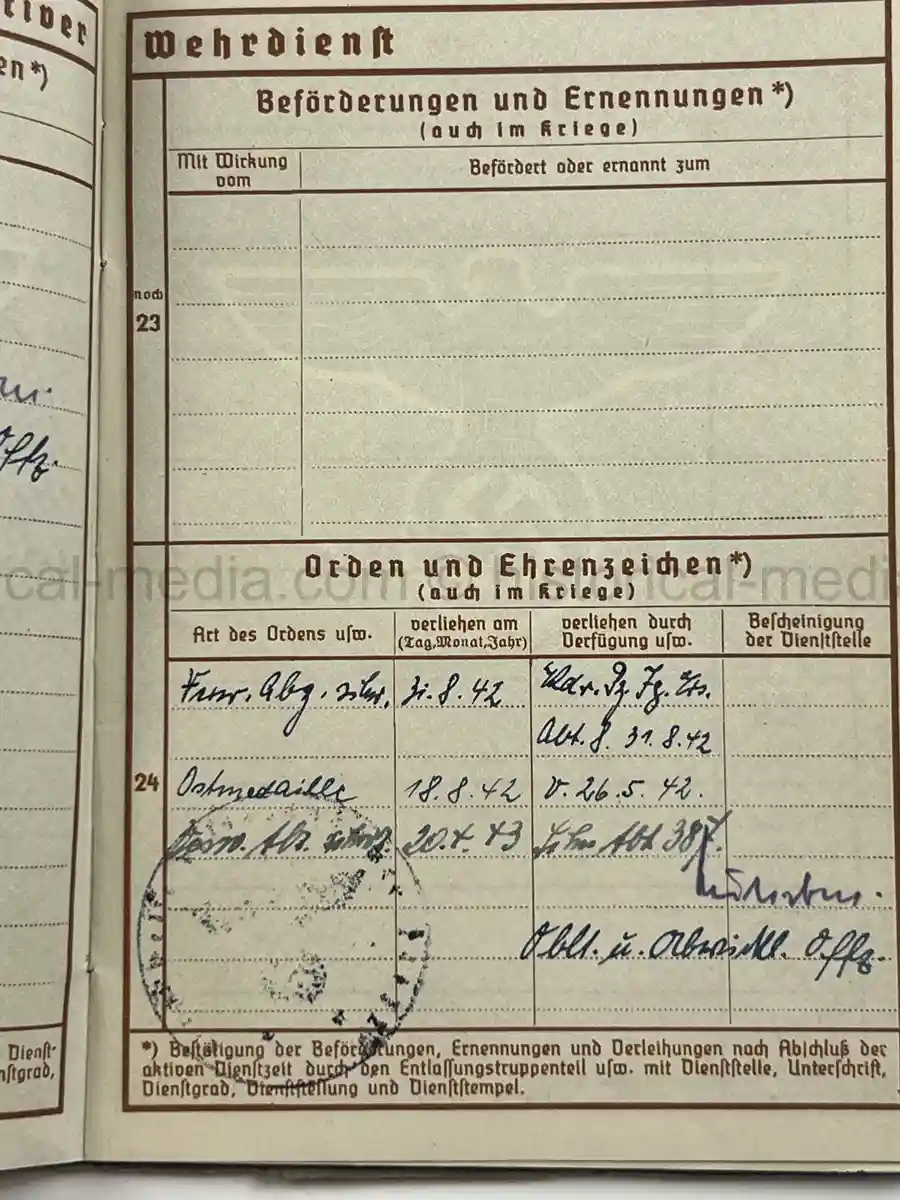 en*)
Wehrdienst
Beförderungen und Ernennungen*)
(auch im Kriege)
Mit Wirkung
vom
Befördert oder ernannt zum
noch
23
Offz.
Orden und Ehrenzeichen*)
(auch im Kriege)
Art des Ordens usw.
verliehen am
(Tag, Monat, Jahr)
verliehen durch
Verfügung usw.
Bescheinigung
der Dienststelle
31.8.42
Abt. 8. 31.8.42
24
Ostmedaille 18.8.42 v. 26.5.42.
20.4.43
Oblt. u. Abwickl. Offz.
*) Bestätigung der Beförderungen, Ernennungen und Verleihungen nach Abschluß der
aktiven Dienstzeit durch den Entlassungstruppenteil usw. mit Dienststelle, Unterschrift,
Dienstgrad, Dienststellung und Dienststempel.
Dienst-
nstgrad,
cal-media.com